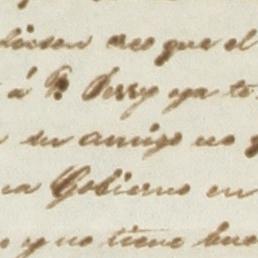 dicen creo que el
á P. Perry ya te
su amigo no
na Gobierno en
y no tiene bue